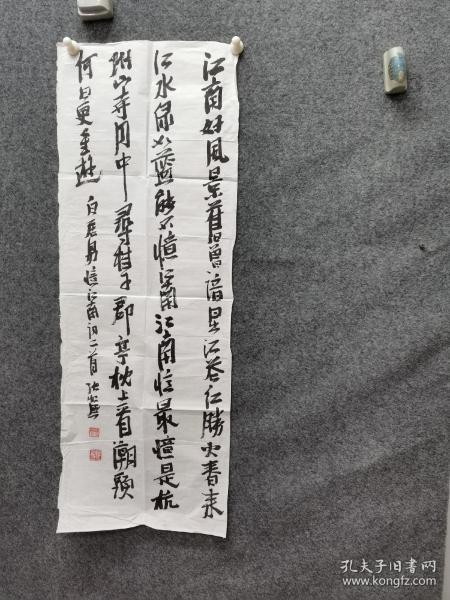 江南好风景旧曾谙日出江花红胜火春来
江水绿如蓝能不忆江南江南忆最忆是杭
州山寺月中寻桂子郡亭枕上看潮头
何日更重游
白居易忆江南词二首
孔夫子旧书网
www.kongfz.com